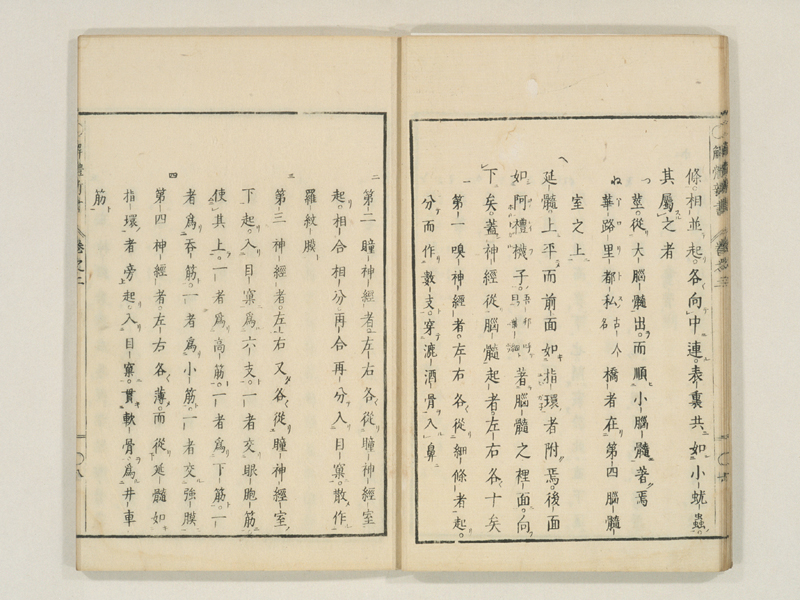 條相並起各向中連表裏共如小蚘蟲
其屬之者
莖從大腦髓出而順小腦髓著焉
華路里都私古人名橋者在第四腦髓
室之上
延髓上平而前面如指環者附焉後面
如阿禮機子著腦髓之裡面向
下矣蓋神經從腦髓起者左右各十矣
一
第一嗅神經者左右各從細條者起
分而作數支穿漉酒骨入鼻
二
第二瞳神經者左右各從瞳神經室
起相合相分再合再分入目窠散作
羅紋膜
三
第三神經者左右又各從瞳神經室
下起入目窠為六支一者交眼胞筋
使其上一者為高筋一者為下筋一
者為吞筋一者為小筋一者交強膜
四
第四神經者左右各薄而從延髓如
指環者旁起入目窠貫軟骨為井車
筋